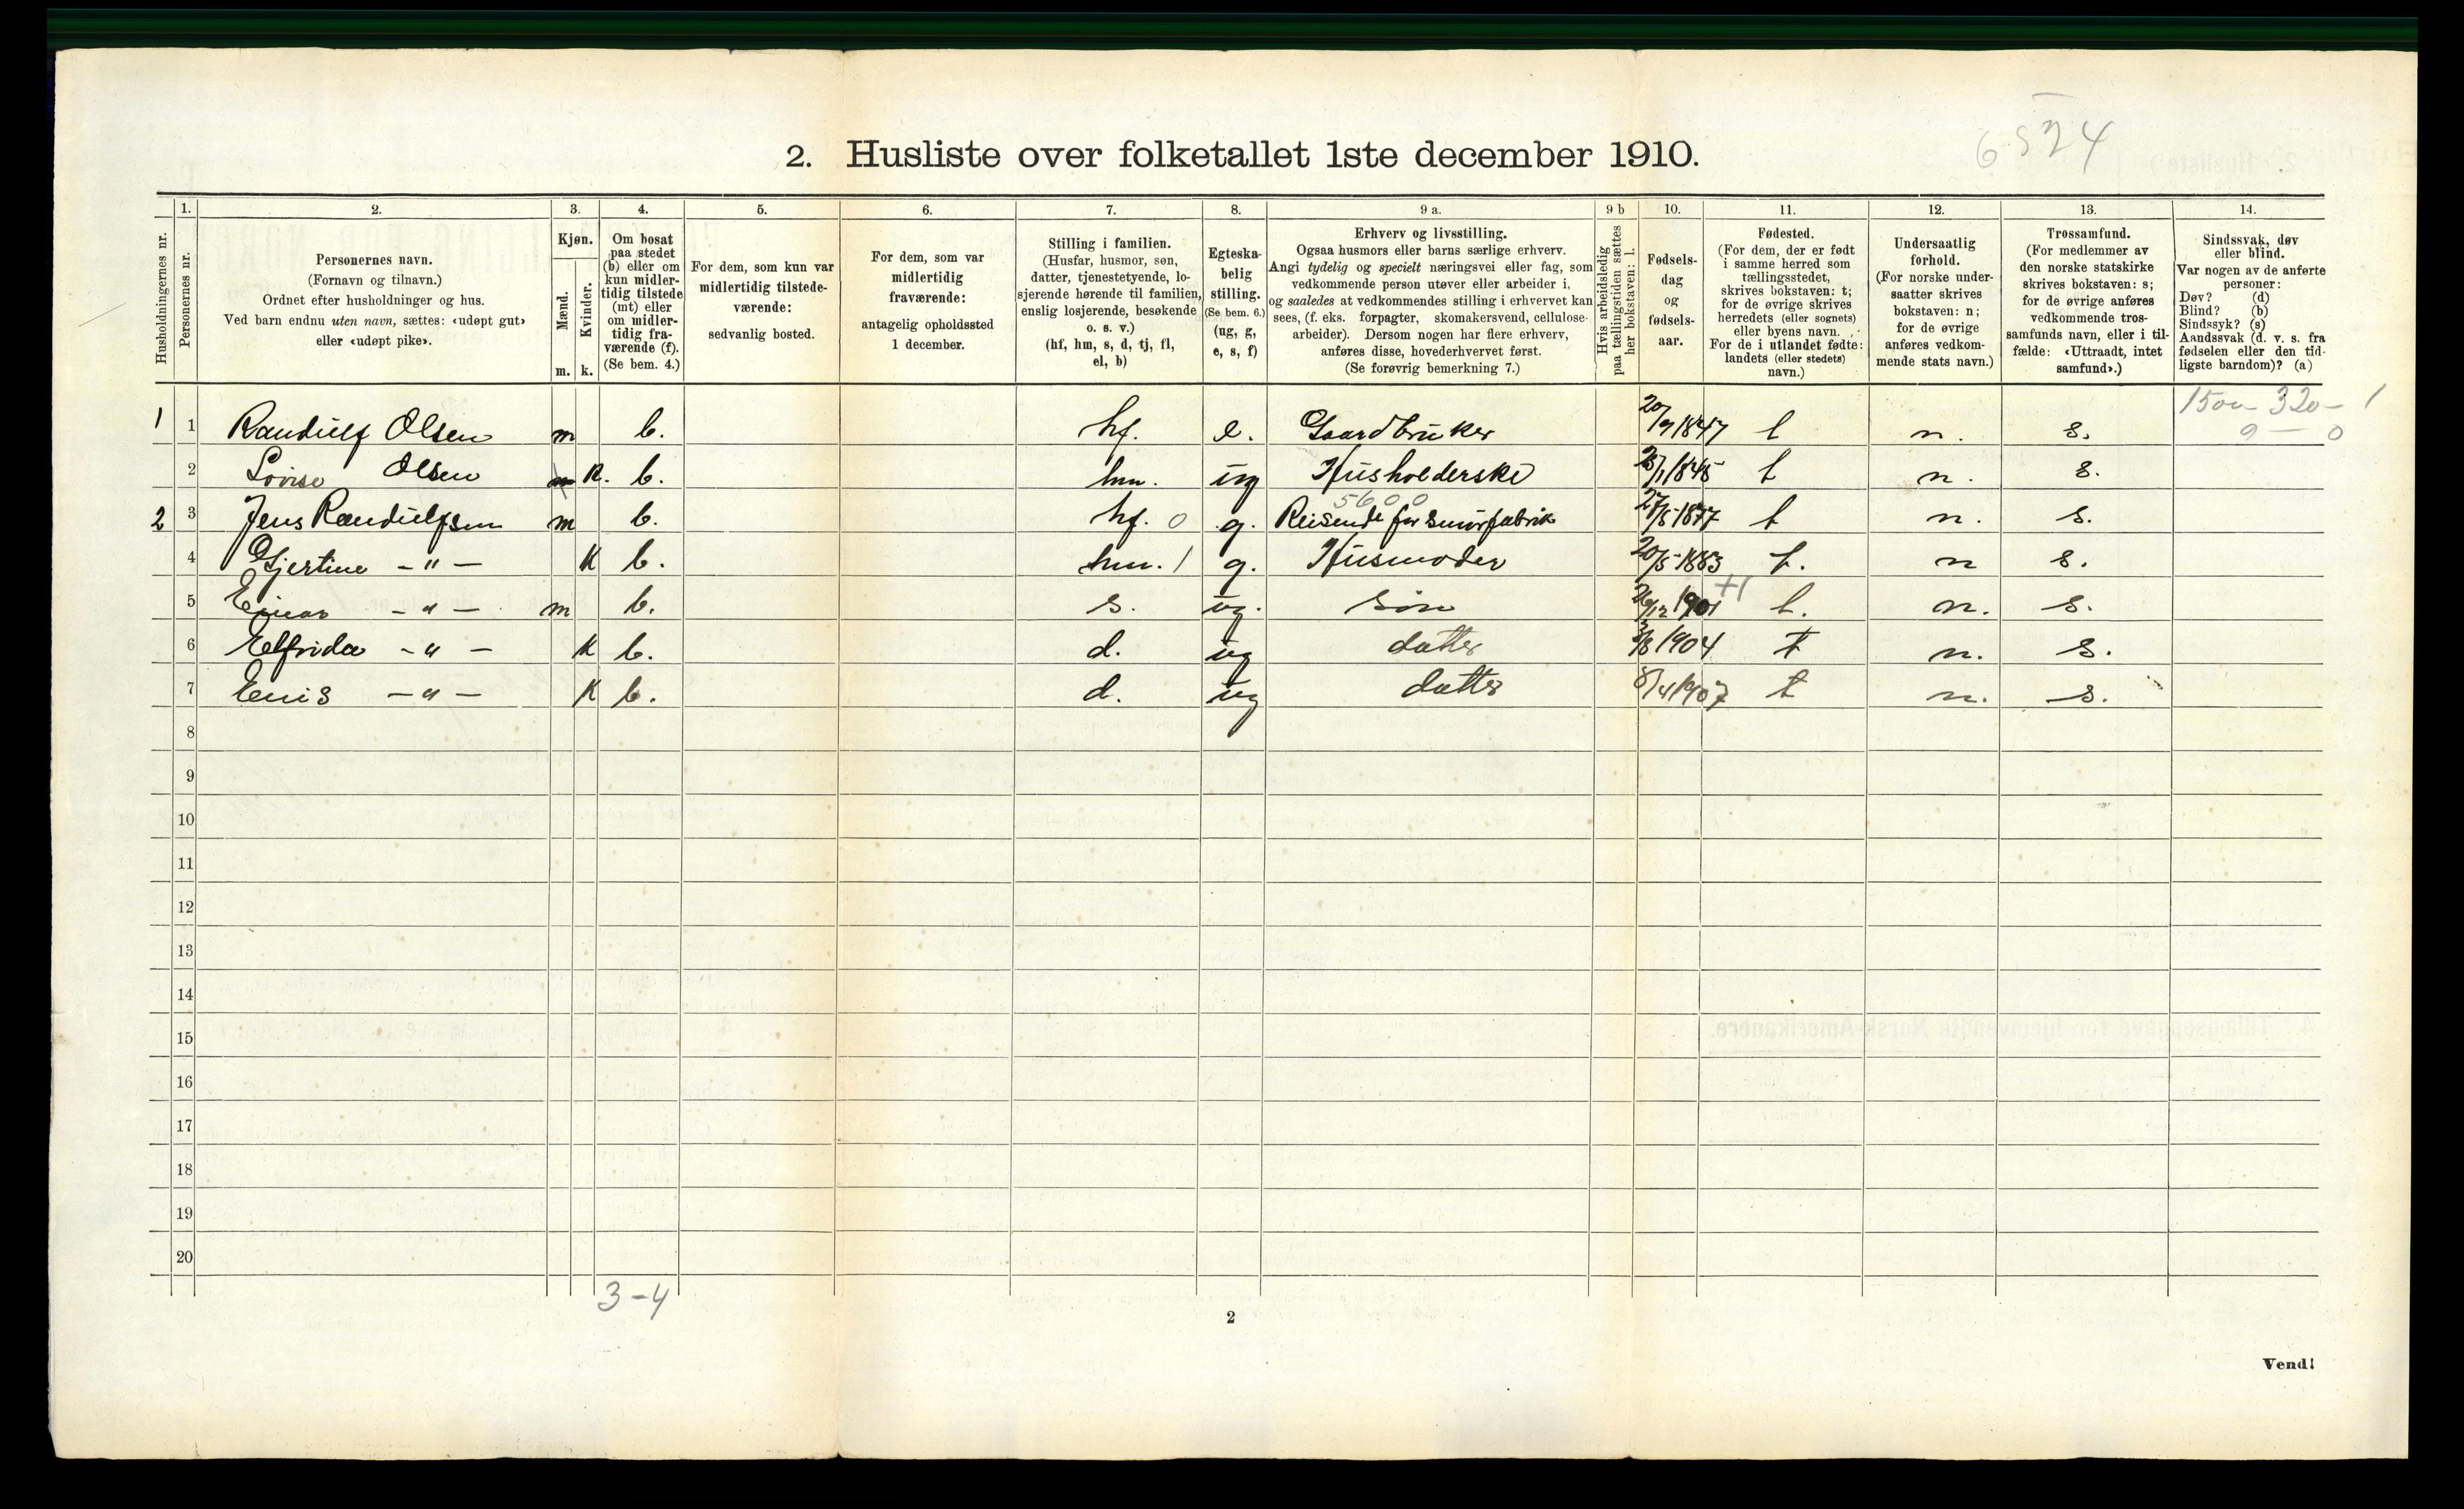 6524
2. Husliste over folketallet 1ste december 1910.
Husholdningernes nr.
1.
Personernes nr.
2.
Personernes navn.
(Fornavn og tilnavn.)
Ordnet efter husholdninger og hus.
Ved barn endnu uten navn, sættes: «udøpt gut»
eller «udøpt pike».
3.
Kjøn.
Mænd.
Kvinder.
m. k.
4.
Om bosat
paa stedet
(b) eller om
kun midler-
tidig tilstede
(mt) eller
om midler-
tidig fra-
værende (f).
(Se bem. 4.)
5.
For dem, som kun var
midlertidig tilstede-
værende:
sedvanlig bosted.
6.
For dem, som var
midlertidig
fraværende:
antagelig opholdssted
1 december.
7.
Stilling i familien.
(Husfar, husmor, søn,
datter, tjenestetyende, lo-
sjerende hørende til familien,
enslig losjerende, besøkende
o. s. v.)
(hf, hm, s, d, tj, fl,
el, b)
8.
Egteska-
belig
stilling.
(Se bem. 6.)
(ug, g,
e, s, f)
9 a.
Erhverv og livsstilling.
Ogsaa husmors eller barns særlige erhverv.
Angi tydelig og specielt næringsvei eller fag, som
vedkommende person utøver eller arbeider i,
og saaledes at vedkommendes stilling i erhvervet kan
sees, (f. eks. forpagter, skomakersvend, cellulose-
arbeider). Dersom nogen har flere erhverv,
anføres disse, hovederhvervet først.
(Se forøvrig bemerkning 7.)
9 b
Hvis arbeidsledig
paa tællingstiden sættes
her bokstaven: l.
10.
Fødsels-
dag
og
fødsels-
aar.
11.
Fødested.
(For dem, der er født
i samme herred som
tællingsstedet,
skrives bokstaven: t;
for de øvrige skrives
herredets (eller sognets)
eller byens navn.
For de i utlandet fødte:
landets (eller stedets)
navn.)
12.
Undersaatlig
forhold.
(For norske under-
saatter skrives
bokstaven: n;
for de øvrige
anføres vedkom-
mende stats navn.)
13.
Trossamfund.
(For medlemmer av
den norske statskirke
skrives bokstaven: s;
for de øvrige anføres
vedkommende tros-
samfunds navn, eller i til-
fælde: «Uttraadt, intet
samfund».)
14.
Sindssvak, døv
eller blind.
Var nogen av de anførte
personer:
Døv? (d)
Blind? (b)
Sindssyk? (s)
Aandssvak (d. v. s. fra
fødselen eller den tid-
ligste barndom)? (a)
1500 - 320 - 1
9 — 0
1 1 Randulf Olsen m b. hf. e. Gaardbruker 20/9 1847 t n. s.
2 Lovise Olsen k. b. hm. ug Husholderske 1845 t n. s.
5600
2 3 Jens Randulfsen m b. hf. 0 g. Reisende for smørfabrik 27/5 1877 t n. s.
4 Gjertine - " - k b. hm. 1 g. Husmoder 20/5 1883 t. n s.
5 Einar - " - m b. s. ug. søn 26/12 1901 +1 t. n. s.
6 Elfrida - " - k b. d. ug datter 1904 t n. s.
7 Enis - " - k b. d. ug datter 8/4 1907 t n. s.
8
9
10
11
12
13
14
15
16
17
18
19
20
3-4
2
Vend!